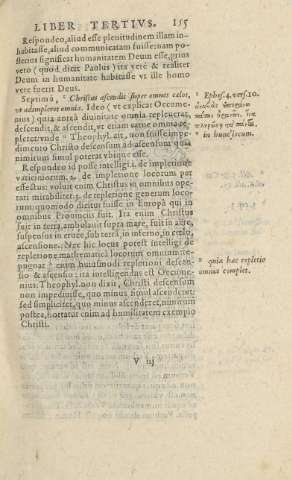 LIBER TERTIVS. 155
Respondeo, aliud esse plenitudinem illam in-
habitasse, aliud communicatam fuisse: nam po-
sterius significat humanitatem Deum esse, prius
verò (quod dicit Paulus) ita verè & realiter
Deum in humanitate habitasse vt ille homo
verè fuerit Deus.
Septimò, Christus ascendit super omnes cælos,
vt adimpleret omnia. Ideo (vt explicat Oecume-
nius) quia antea diuinitate omnia repleuerat,
descendit, & ascendit, vt etiam carne omnia re-
pleret: vnde Theophyl. ait, non fuisse impe-
dimento Christo descensum ad ascensum quin
nimirum simul poterat vbique esse.
Respondeo id posse intelligi. 1. de impletione
vaticiniorum. 2. de impletione locorum per
effectus: voluit enim Christus in omnibus ope-
rari mirabiliter. 3. de repletione generum loco-
rum: quomodo dicitur fuisse in Europa qui in
omnibus Prouinciis fuit. Ita enim Christus
fuit in terra, ambulauit supra mare, fuit in aëre,
suspensus in cruce, sub terra, in inferno, in cælo,
ascensione. Nec hic locus potest intelligi de
repletione mathematica locorum omnium: re-
pugnat enim huiusmodi repletioni descen-
sio & ascensio: ita intelligendus est Oecume-
nius: Theophyl. non dixit, Christi descensum
non impediuisse, quo minus simul ascenderet:
sed simpliciter, quo minus ascenderet, nimirum
postea, hortatur enim ad humilitatem exemplo
Christi.
V iij
Ephes. 4. vers. 10.
in hunc locum.
quia hæc repletio
omnia complet.